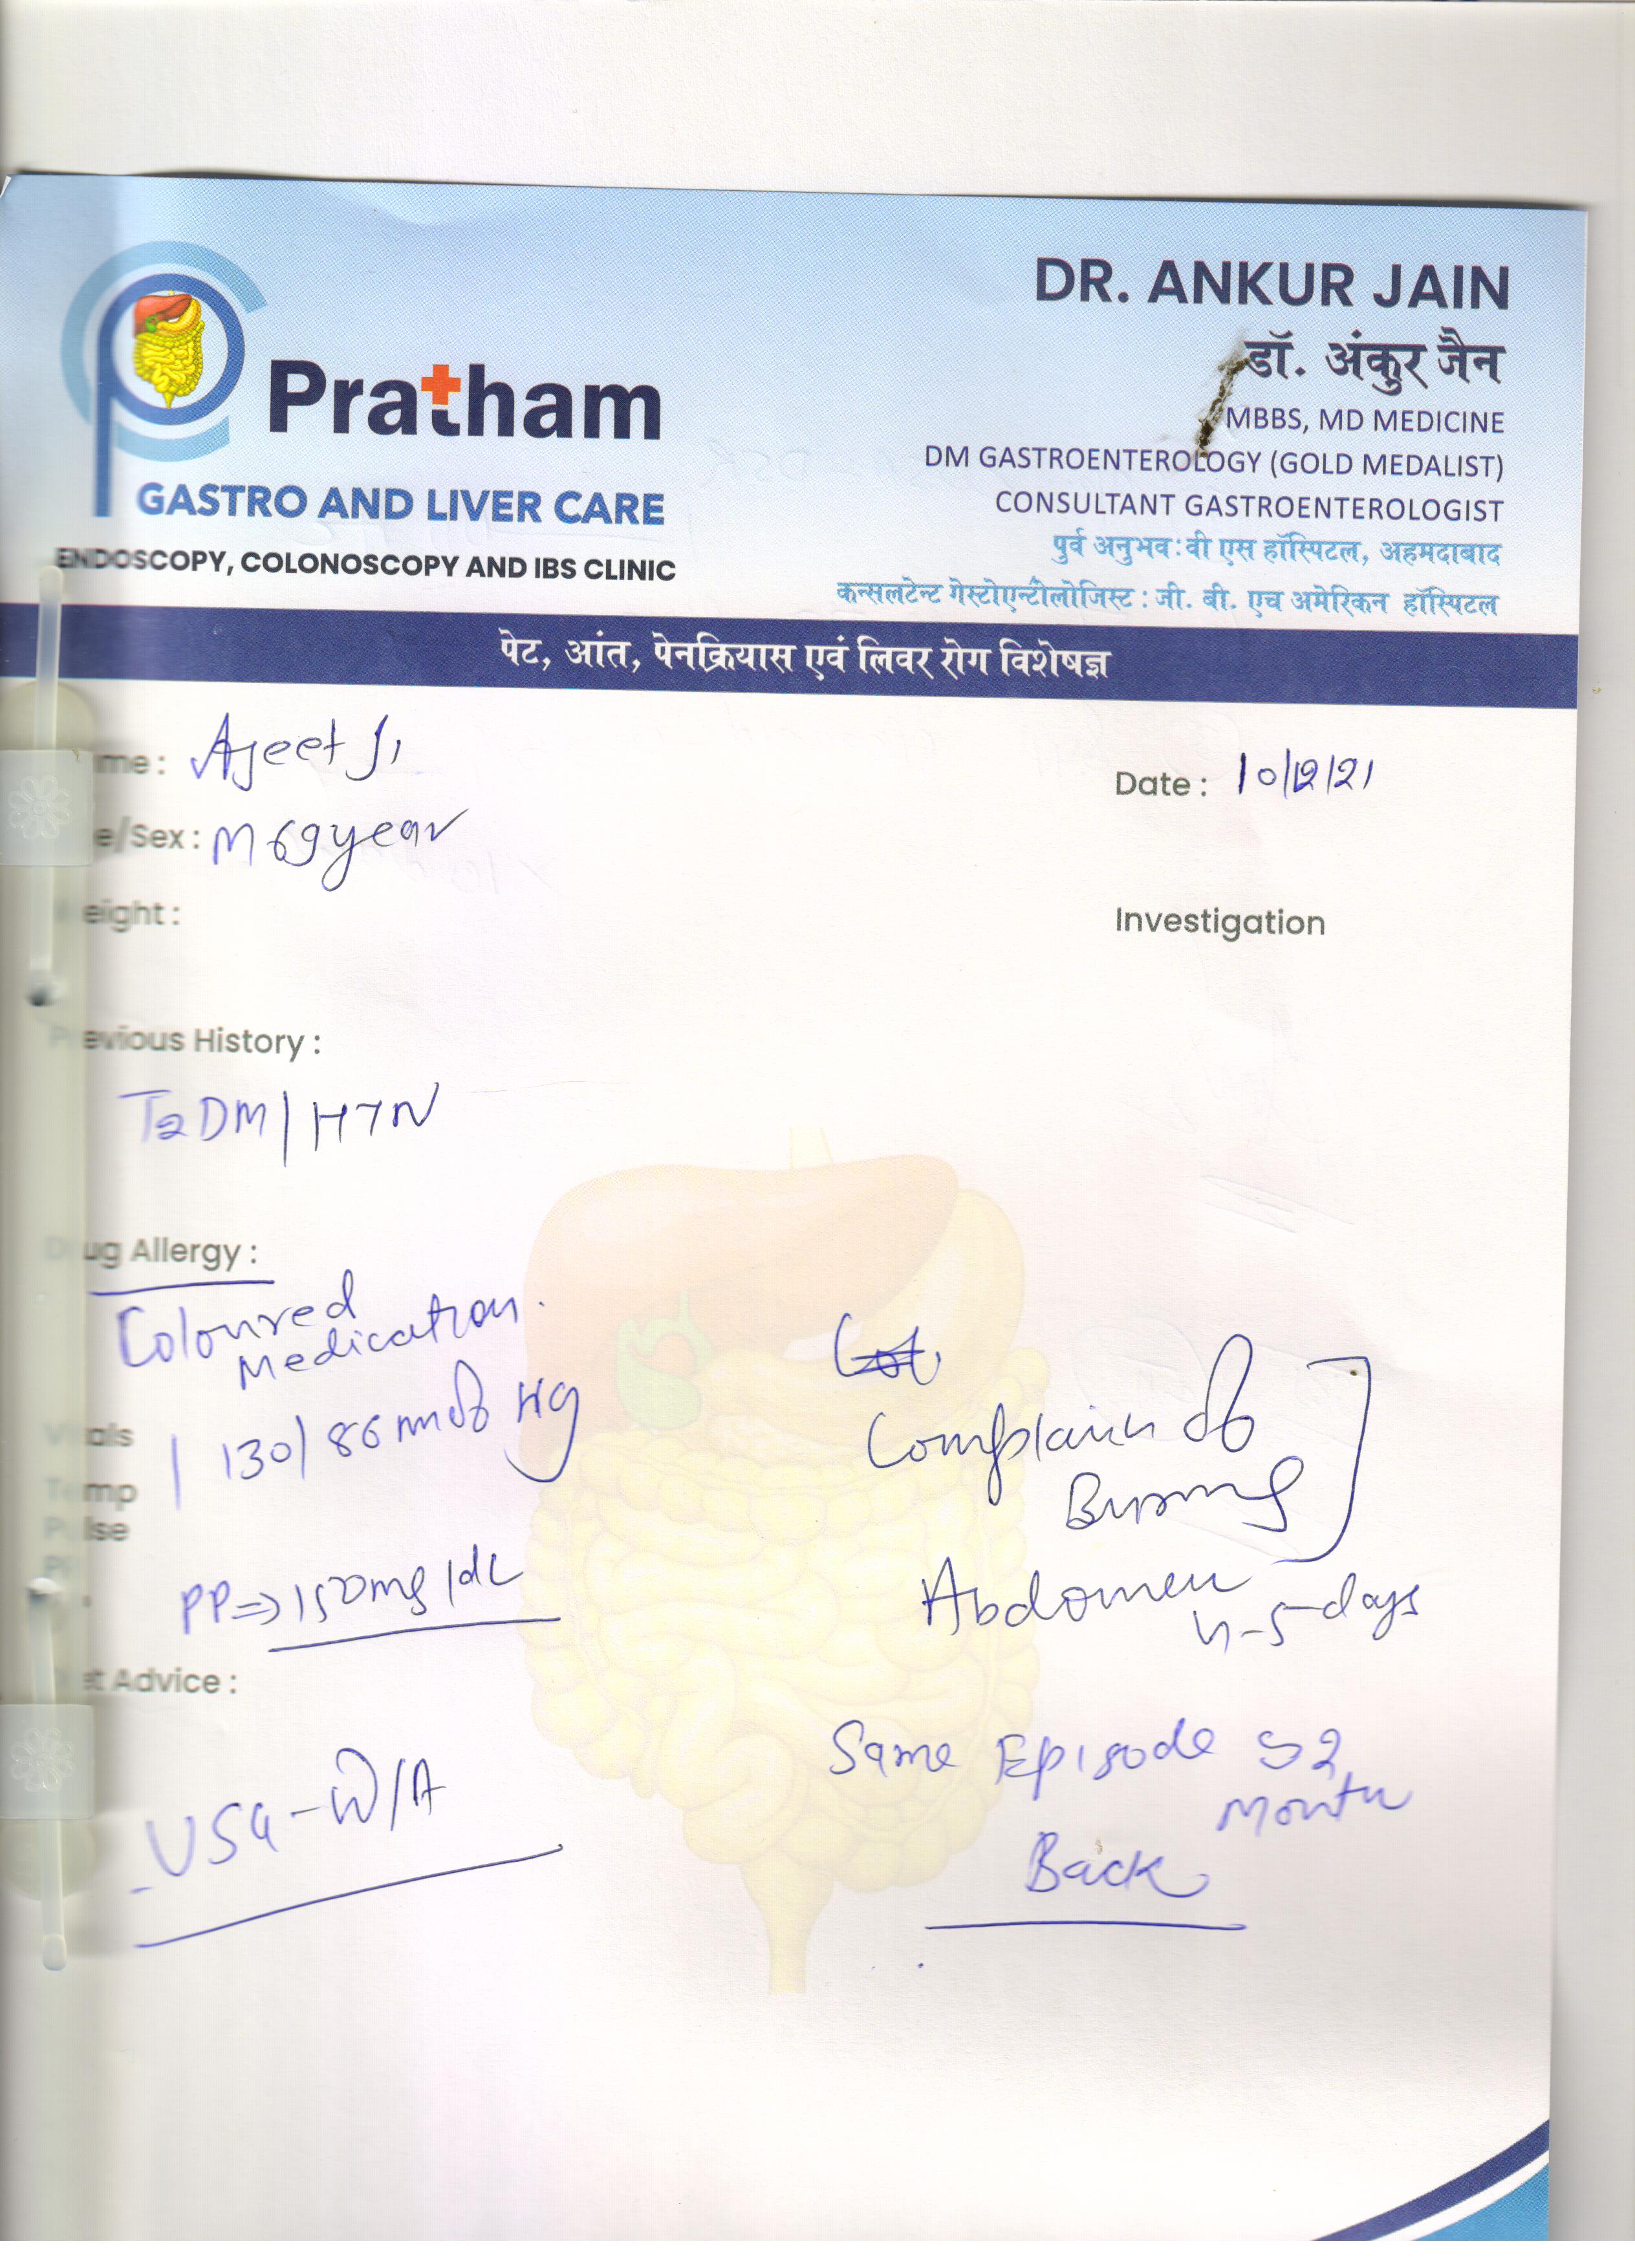 Pratham
GASTRO AND LIVER CARE
ENDOSCOPY, COLONOSCOPY AND IBS CLINIC
DR. ANKUR JAIN
डॉ. अंकुर जैन
MBBS, MD MEDICINE
DM GASTROENTEROLOGY (GOLD MEDALIST)
CONSULTANT GASTROENTEROLOGIST
पुर्व अनुभव : वी एस हॉस्पिटल, अहमदाबाद
कन्सलटेन्ट गेस्टोएन्टोलोजिस्ट : जी. बी. एच अमेरिकन हॉस्पिटल
पेट, आंत, पेनक्रियास एवं लिवर रोग विशेषज्ञ
me : Ajeet Ji
Date : 10/12/21
e/Sex : M 69 year
eight :
Investigation
Previous History :
T2DM / HTN
Drug Allergy :
Coloured
Medication.
Vitals
130/86 mm of Hg
Temp
Pulse
PP => 150 mg/dL
Complain of
Burning
Abdomen
4-5 days
t Advice :
Same Episode 2
Month
Back
USG - W/A